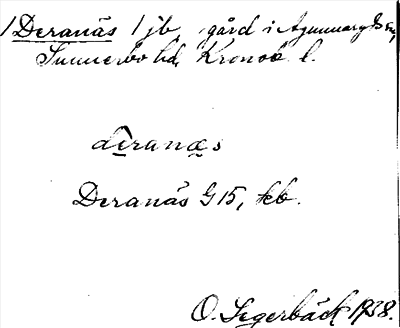 /Deranäs 1 jb, gård i Agunnaryds sn,
Sunnerbo hd, Kronob. l.
deranæs
Deranäs G 15, tkb.
O. Segerbäck 1938.